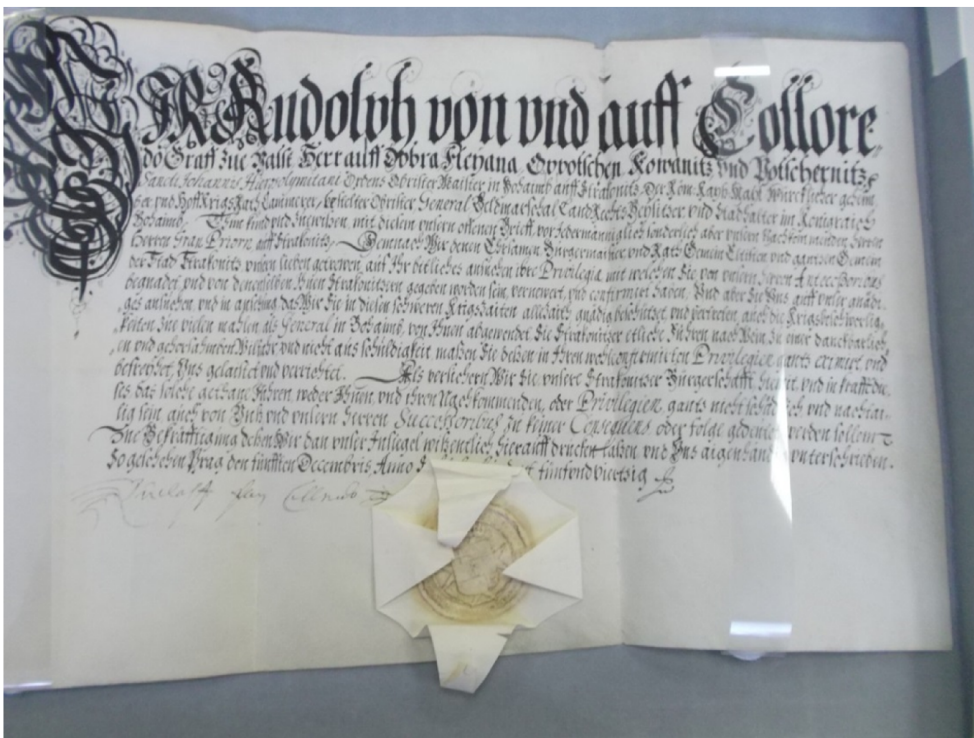 WIR Rudolph von vnd auff Collore,
do Graff zue Walsee Herr auff Dobra Opotschen vnd
Sancti Johannis Hierosolymitani Ordens Obrister Maister in Behaimb auff Strakonitz, Der Röm: Kays: Maÿt: Würckhlicher geheim,
ser vnd HoffKriegs Rath, Cammerer, bestelter Obrister General Veldmarschal, LandRechts Beysitzer, vnd Stadhalter im Königreich
Behaimb. Thun kund vnd zuewissen, mit diesem vnsern offenen Brieff, vor jedermänniglich, sonderlich aber vnsern Herrn
Herren Gran Priorn auff Strakonitz. Demnach Wir denen Ehrsamen Burgermaister vnd Rath, Gemein Eltisten vnd gantzen Gemein
der Stad Strakonitz vnsern lieben getrewen, auf Ihr bitliches ansuchen ihre Privilegia, mit welchen Sie von vnsern Herren Antecessoribus
begnadet, vnd von denenselben Ihnen Strakonitzern gegeben worden sein, vernewert, vnd confirmiret haben, Vnd aber Sie Vns auff vnser gnädi,
ges ansuchen, vnd in das Wir Sie in diesen schweren Krigszeiten gnädig beschützet, vnd vertreten, auch die Krigs
keiten Sie vielen mahlen als General in Behaimb, von Ihnen abgewendet, die Strakonitzer etliche Fuhren nach Wein, zu einer danckbarlich,
en vnd gehorsahmben vnd nicht aus schuldigkeit, massen Sie dessen in Ihren wohl confirmirten Privilegien gantz eximirt, vnd
befreyhet, Vns gelaistet vnd verrichtet. Als versichern Wir Sie vnsere Strakonitzer Bürgerschafft hiemit, vnd in krafft die,
ses, das solche gethane Fuhren, weder Ihnen, vnd ihren Nachkommenden, oder Privilegien, gantz nicht schädlich vnd nachtai,
lig sein, auch von Vnß vnd vnsern Herren Successoribus, zu keiner Consequens oder folge werden sollen.
Zue Bekräfftigung dessen, Wir dan vnser Insiegel wissentlich hierauff drucken lassen, vnd Vns aigenhändig vnterschrieben.
So geschehen Prag den fünfften Decembris, Anno fünfvndviertzig